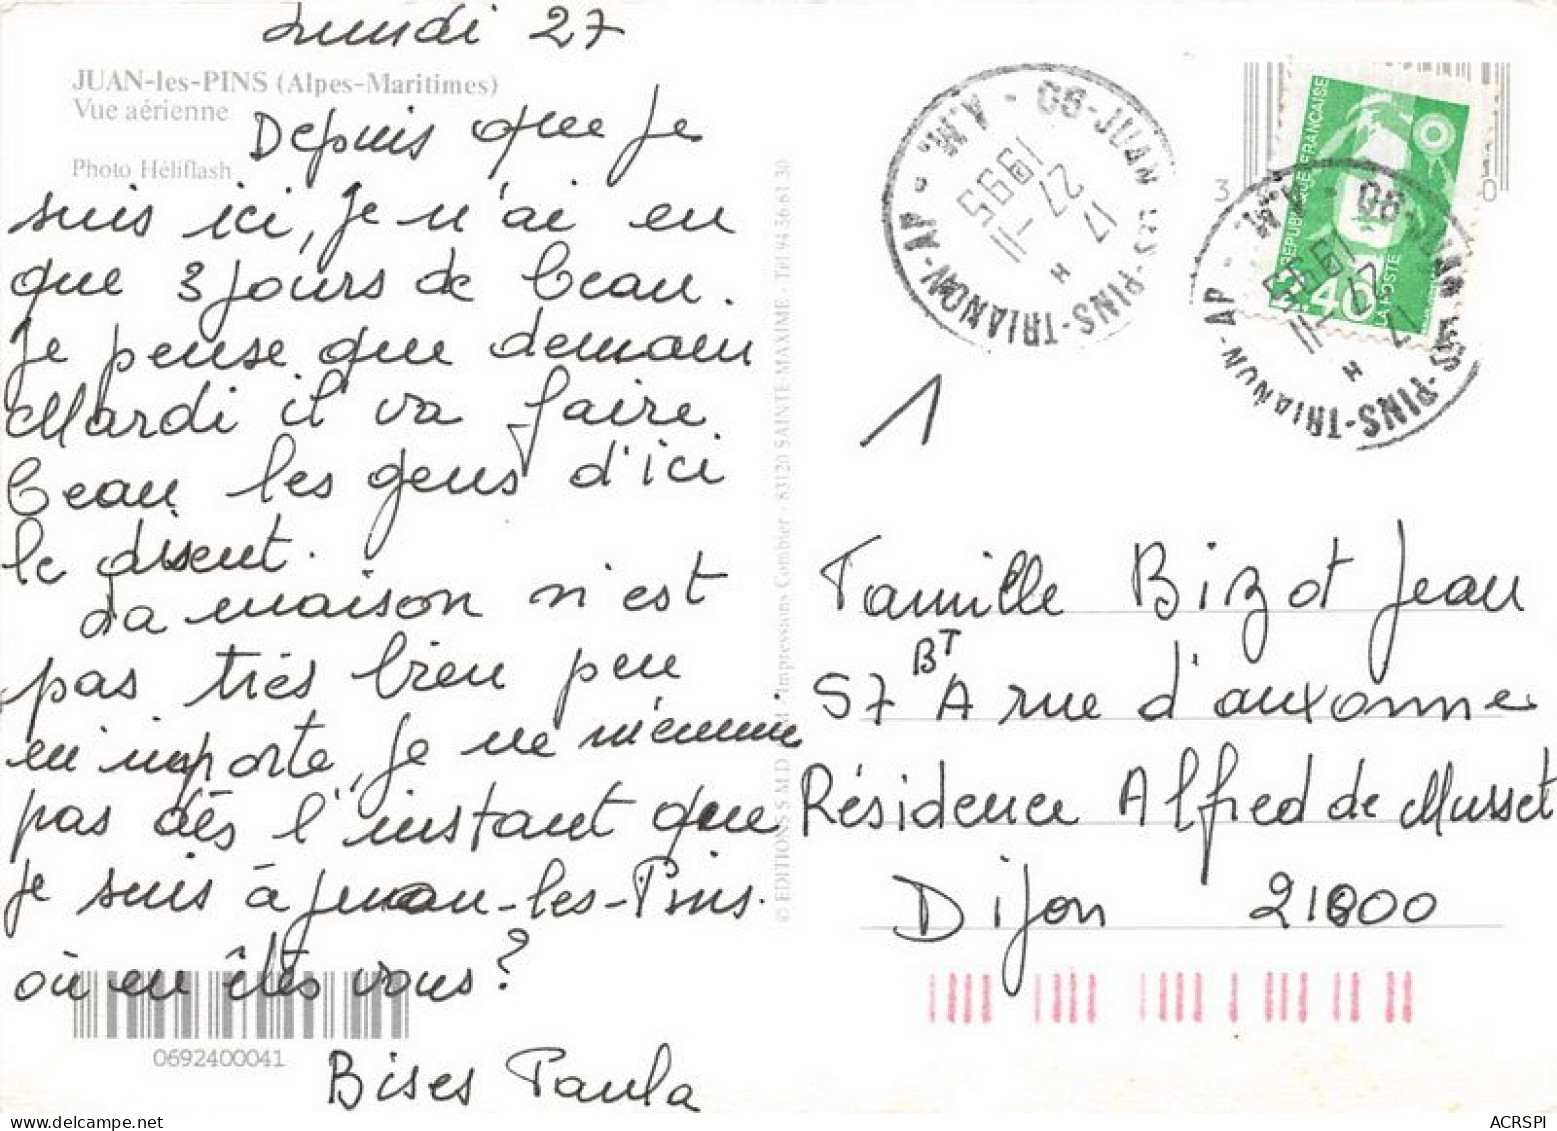 Lundi 27
JUAN-les-PINS (Alpes-Maritimes)
Vue aérienne
Photo Héliflash
Depuis que je
suis ici, je n'ai eu
que 3 jours de beau.
Je pense que demain
Mardi il va faire
beau les gens d'ici
le disent.
La maison n'est
pas très bien peu
en importe, je ne m'ennuie
pas dès l'instant que
je suis à Juan-les-Pins.
où en êtes vous?
Bises Paula
0692400041
© EDITIONS S.M.D. Impressions Combier - 83120 SAINTE-MAXIME - Tél 94 56 61 30
06-JUAN-LES-PINS-TRIANON-AP - A.M.
17 H
27-11
1995
REPUBLIQUE FRANÇAISE
2.40
LA POSTE
06-JUAN-LES-PINS-TRIANON-AP - A.M.
17 H
27-11
1995
3
0
1
Famille Bizot Jean
57 BT A rue d'auxonne
Résidence Alfred de Musset
Dijon 21000
ACRSPI